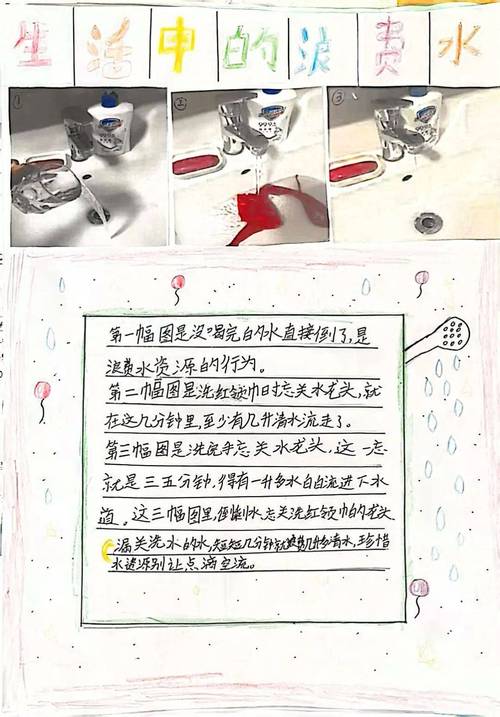 生活中的浪费水
① ② ③
第一幅图是没喝完的水直接倒了,是
浪费水资源的行为。
第二幅图是洗红领巾时忘关水龙头,就
在这几分钟里,至少有几升清水流走了。
第三幅图是洗完手忘关水龙头,这一忘
就是三五分钟,得有一升多水白白流进下水
道。这三幅图里,倒剩水忘关洗红领巾的龙头
漏关洗水的水,短短几分钟就浪费几升多清水,珍惜
水资源别让点滴空流。